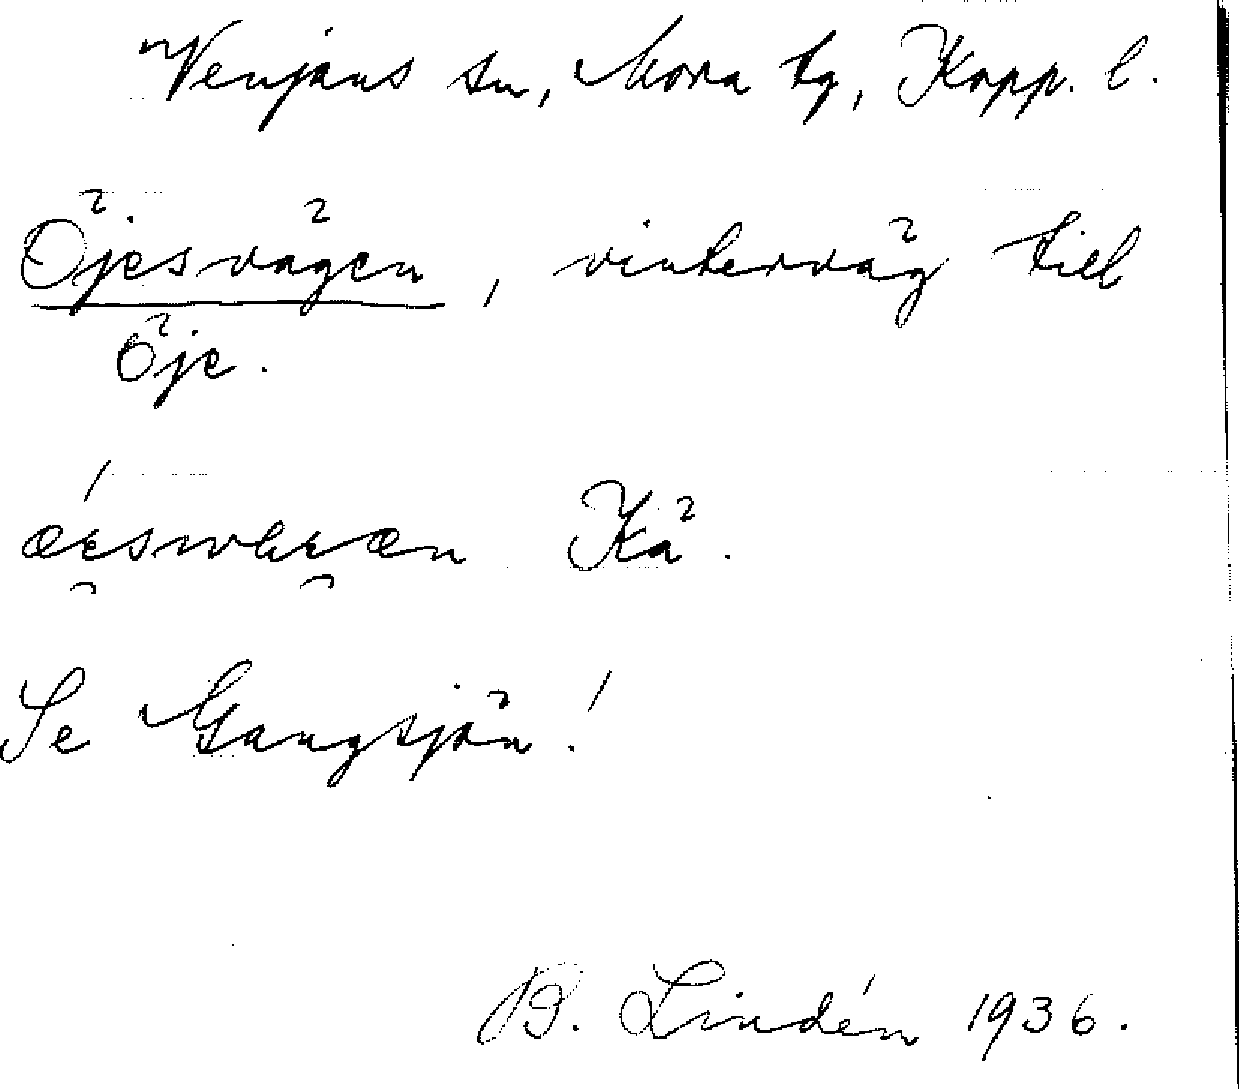 Venjans sn, Mora tg, Kopp. l.
Öjesvägen, vinterväg till
Öje.
Kä.
Se Gangsjön!
B. Lindén 1936.